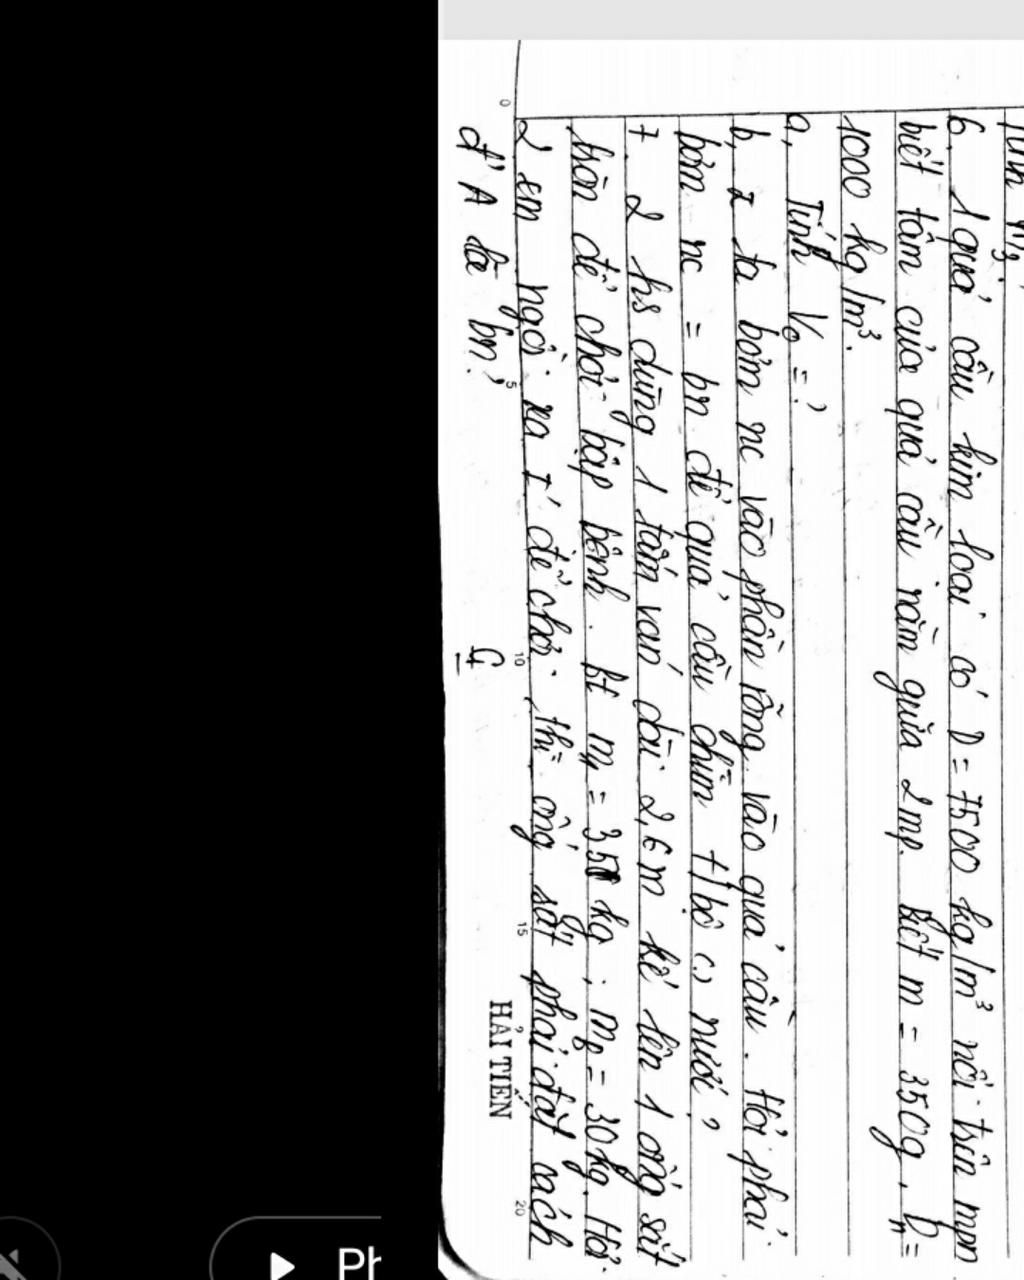 6, 1 quả cầu kim loại có D = 7500 kg/m³ nổi trên mpn
biết tâm của quả cầu nằm giữa 2 mp. Biết m = 350g, Dn =
1000 kg/m³.
a, Tính V0 = ?
b, ta bơm nc vào phần rỗng vào quả cầu. Hỏi phải
bơm nc = bn để quả cầu chìm t/bộ nước ?
7. 2 hs dùng 1 tấm ván dài 2,6m kê lên 1 ống sắt
tròn để chơi bập bênh. Bt mA = 35 kg ; mB = 30kg. Hỏi
2 em ngồi xa I' để chơi thì ống sắt phải đặt cách
đ' A là bn ?
G
0
5
10
15
20
HẢI TIẾN